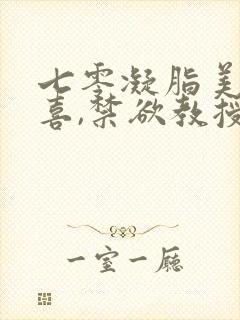 七零凝脂美
喜,禁欲教授
一室一厅